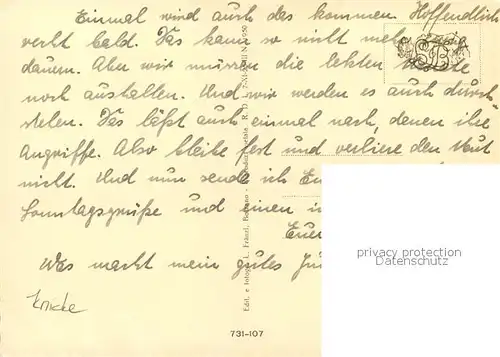 Einmal wird auch das kommen. Hoffendlich
recht bald. Das kann so nicht mehr ewig
dauern. Aber wir müssen die letzten Monate
noch aushalten. Und wir werden es auch durch-
stehen. Das läßt auch einmal nach, denen ihre
Angriffe. Also bleibe fest und verliere den Mut
nicht. Und nun sende ich
Sonntagsgrüße und einen
Euer
Was macht mein gutes
knicke
privacy protection
Datenschutz
731-107